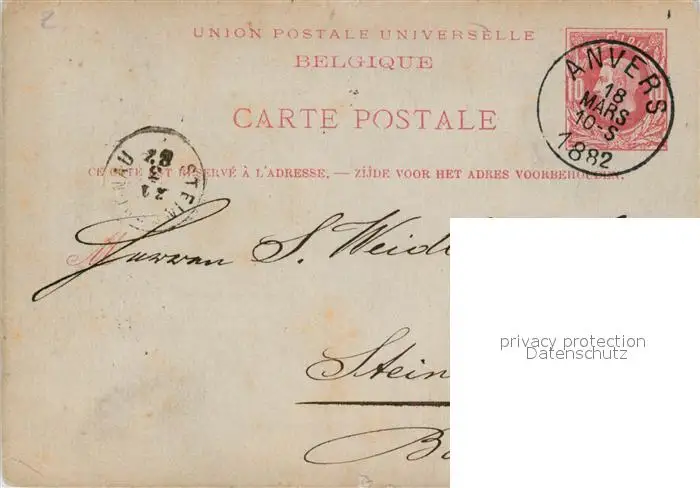 UNION POSTALE UNIVERSELLE
BELGIQUE
CARTE POSTALE
ANVERS
18
MARS
10-S
1882
CE CÔTÉ EST RÉSERVÉ À L'ADRESSE. — ZIJDE VOOR HET ADRES VOORBEHOUDEN.
Herren S. Weidl
Stein
privacy protection
Datenschutz